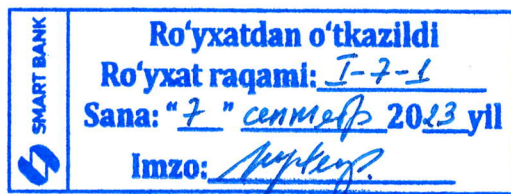 SMART BANK
Ro'yxatdan o'tkazildi
Ro'yxat raqami: I-7-1
Sana: "7" сентябр 2023 yil
Imzo: